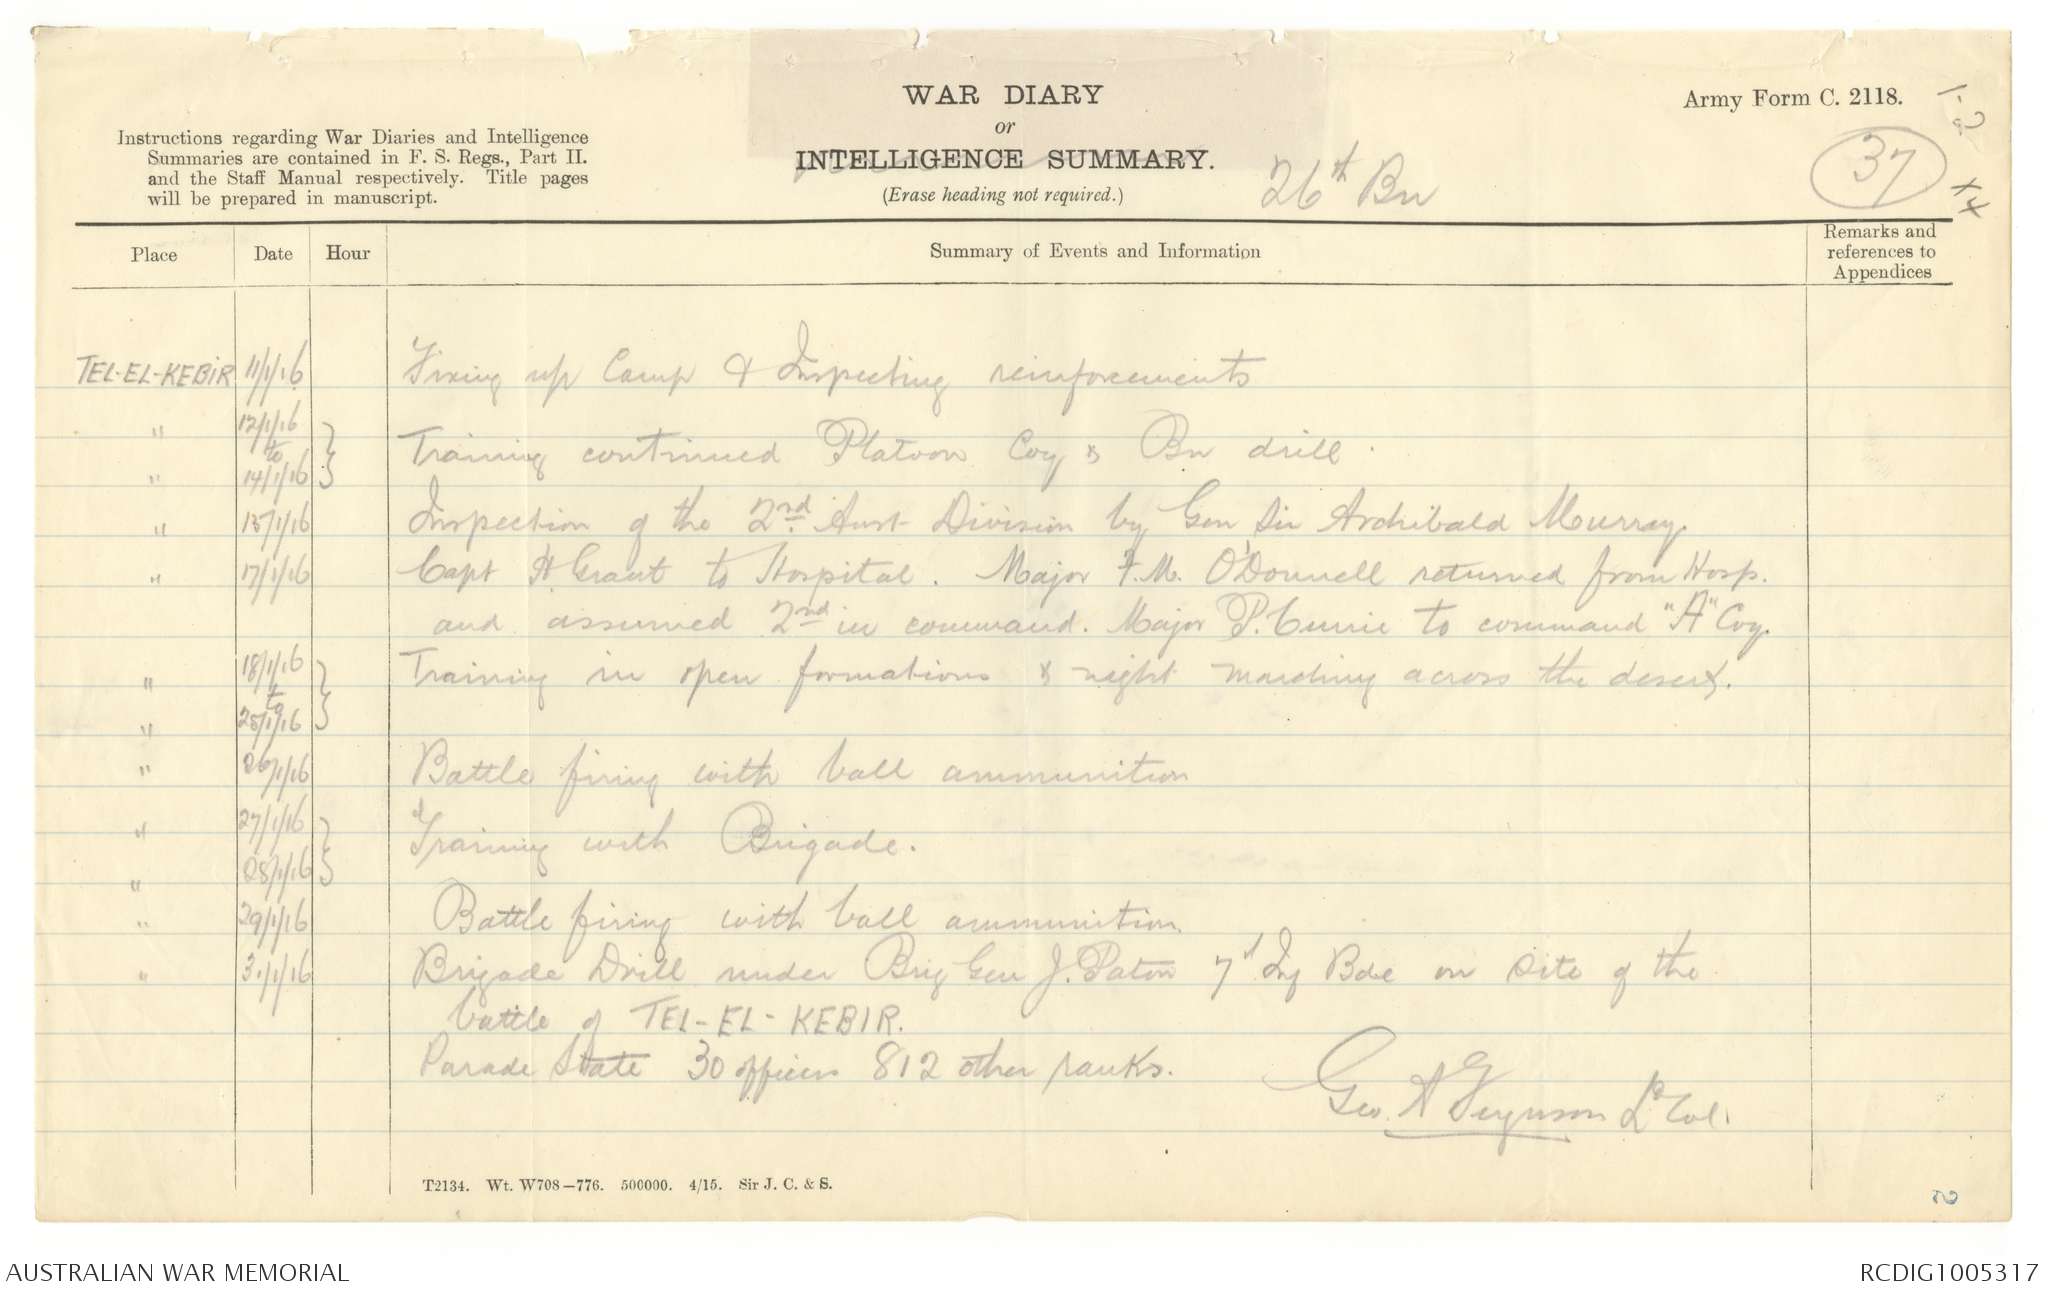 WAR DIARY
or
INTELLIGENCE SUMMARY.
(Erase heading not required.)
Army Form C. 2118.
Instructions regarding War Diaries and Intelligence
Summaries are contained in F. S. Regs., Part II.
and the Staff Manual respectively. Title pages
will be prepared in manuscript.
26th Bn
37
Place Date Hour Summary of Events and Information Remarks and references to Appendices
TEL-EL-KEBIR 11/1/16 Fixing up Camp & Inspecting reinforcements
" 12/1/16
to } Training continued Platoon Coy & Bn drill.
" 14/1/16
" 15/1/16 Inspection of the 2nd Aust Division by Gen Sir Archibald Murray.
" 17/1/16 Capt H. Grant to Hospital. Major F.M. O'Donnell returned from Hosp.
and assumed 2nd in command. Major P. Currie to command "A" Coy.
" 18/1/16 Training in open formations & night marching across the desert.
to }
" 25/1/16
" 26/1/16 Battle firing with ball ammunition
" 27/1/16
} Training with Brigade.
" 28/1/16
" 29/1/16 Battle firing with ball ammunition
" 31/1/16 Brigade Drill under Brig Gen J. Paton 7th Inf Bde on site of the
battle of TEL-EL-KEBIR.
Parade State 30 officers 812 other ranks.
Geo. A Ferguson Lt Col.
T2134. Wt. W708—776. 500000. 4/15. Sir J. C. & S.
2
AUSTRALIAN WAR MEMORIAL
RCDIG1005317